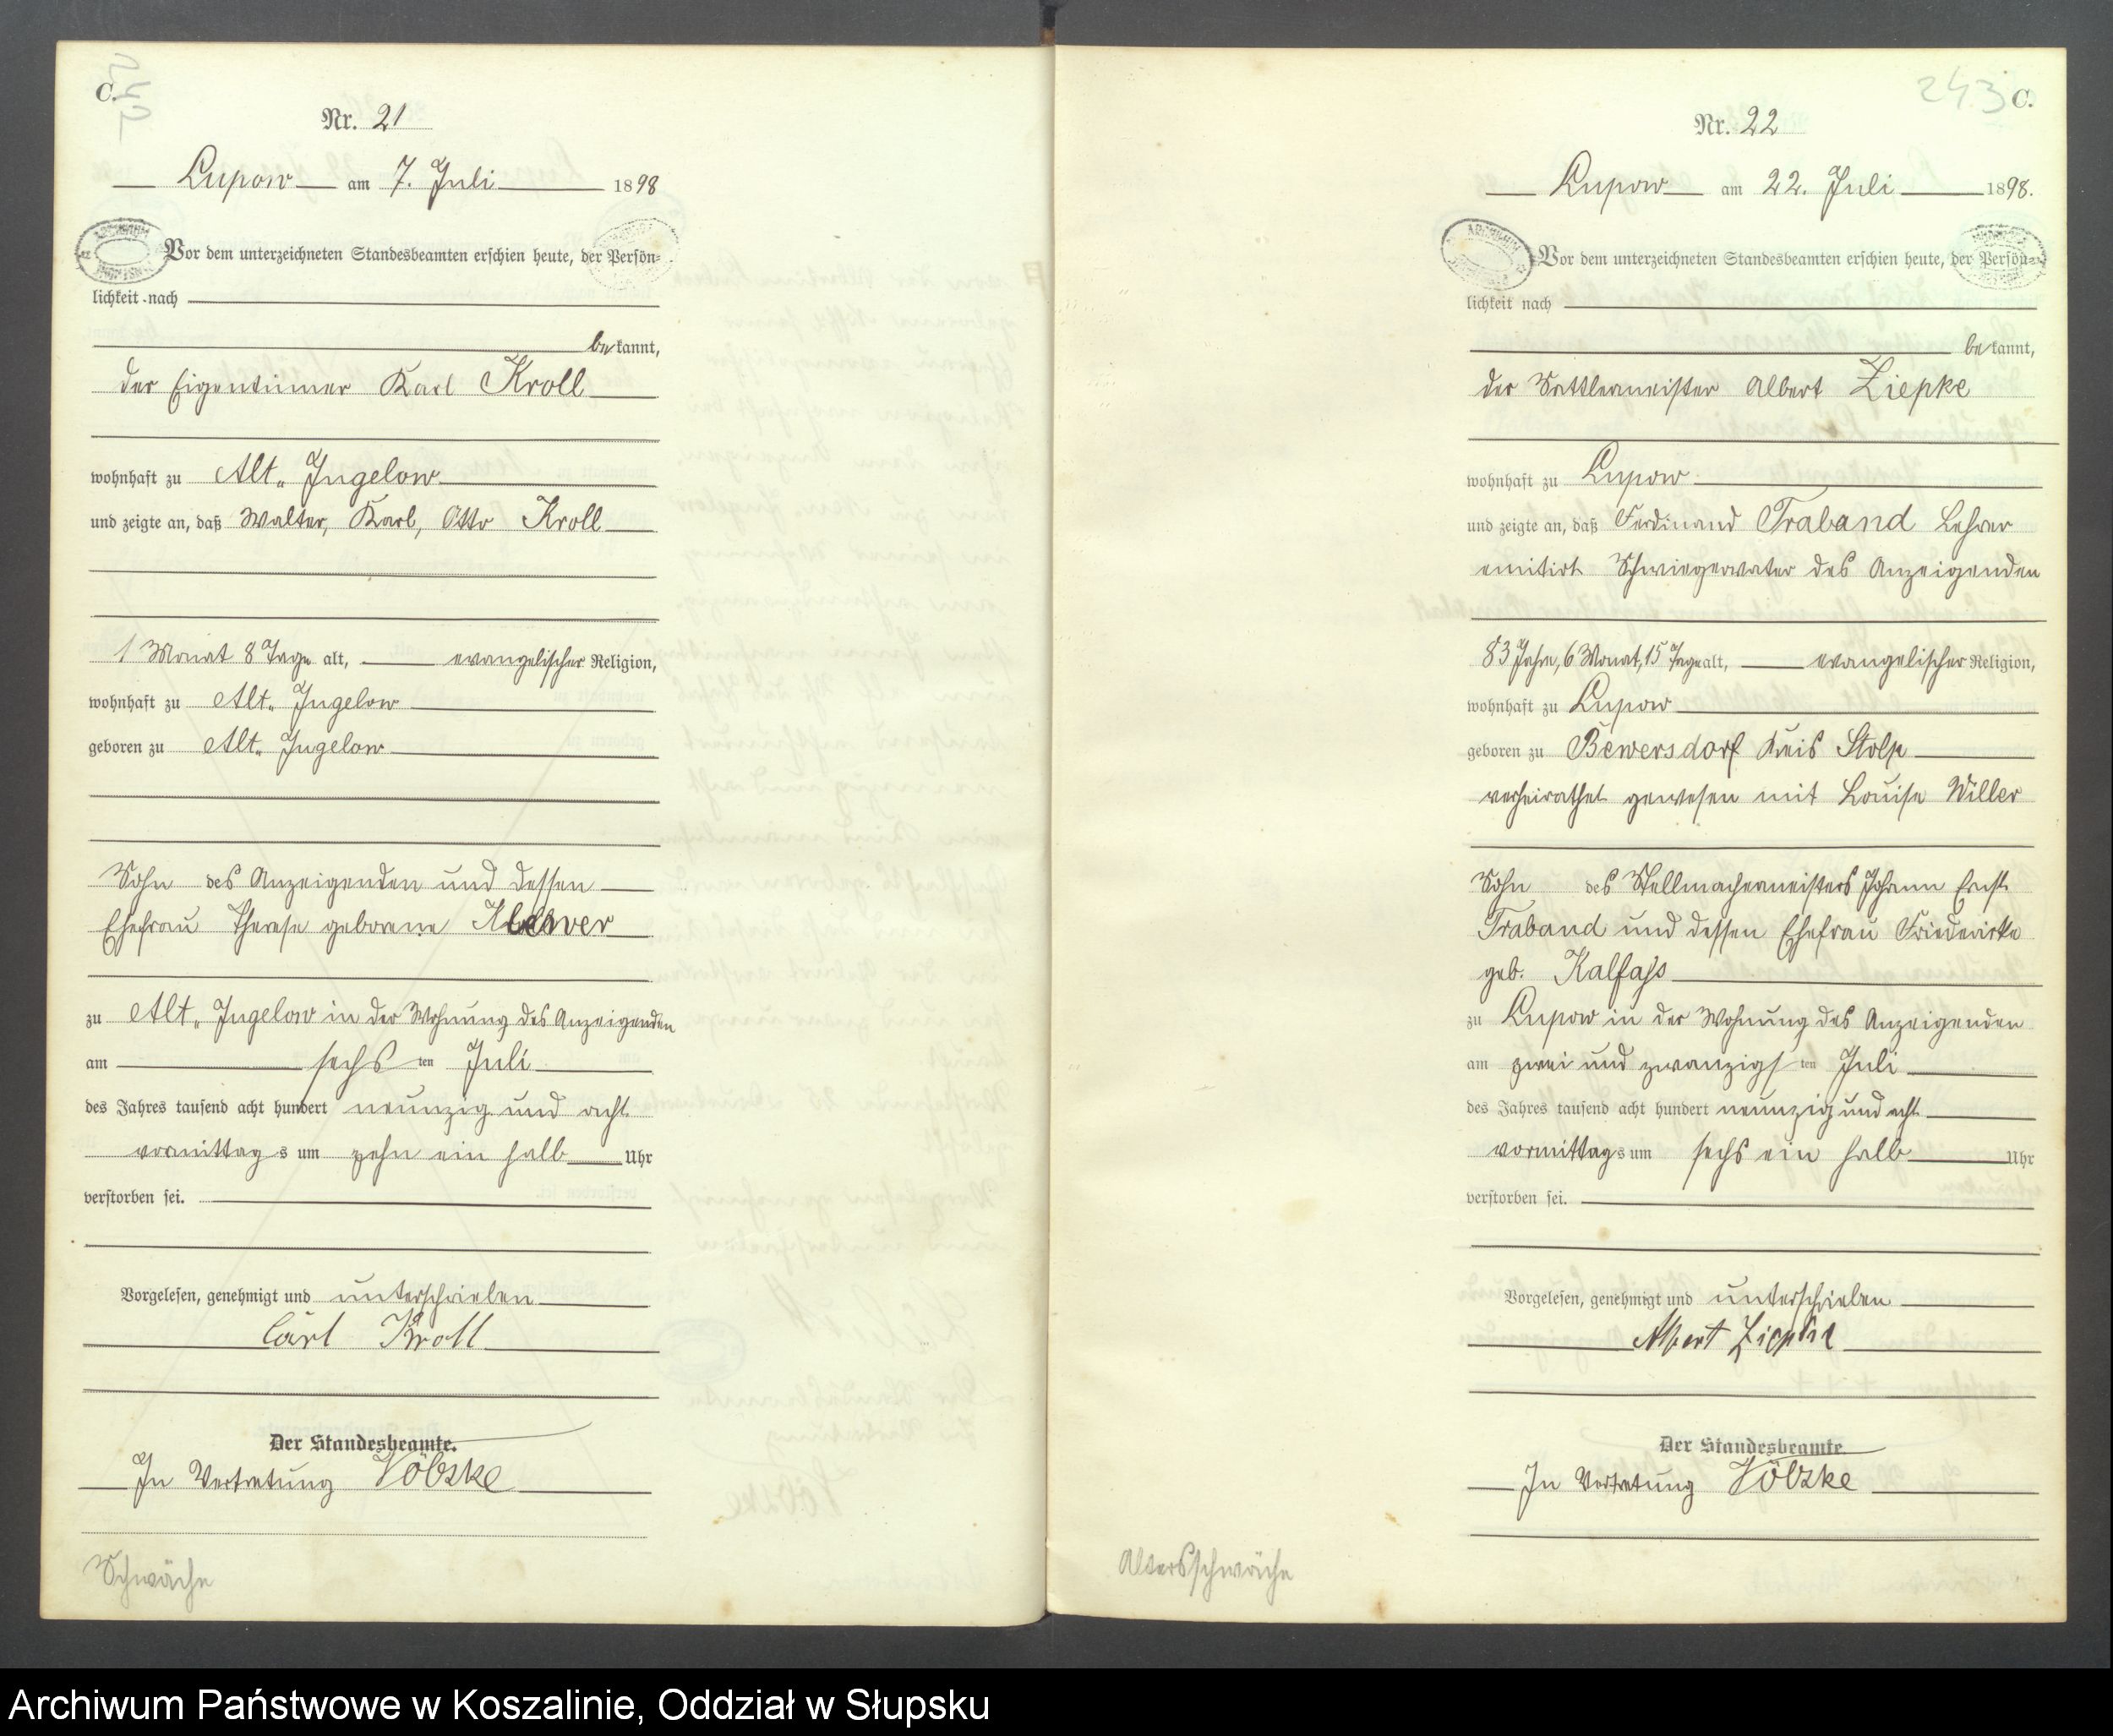 C.
Nr. 21
Lupow am 7. Juli 1898
Vor dem unterzeichneten Standesbeamten erschien heute, der Persön-
lichkeit nach
bekannt,
der Eigentümer Karl Kroll
wohnhaft zu Alt-Jugelow
und zeigte an, daß Walter, Karl, Otto Kroll
1 Monat 8 Tage alt, evangelischer Religion,
wohnhaft zu Alt-Jugelow
geboren zu Alt-Jugelow
Sohn des Anzeigenden und dessen
Ehefrau Therese geborene
zu Alt-Jugelow in der Wohnung des Anzeigenden
am sechsten Juli
des Jahres tausend acht hundert neunzig und acht
vormittags um zehn ein halb Uhr
verstorben sei.
Vorgelesen, genehmigt und unterschrieben
Carl Kroll
Der Standesbeamte.
In Vertretung Völzke
Schwäche
243 C.
Nr. 22
Lupow am 22. Juli 1898.
Vor dem unterzeichneten Standesbeamten erschien heute, der Persön-
lichkeit nach
bekannt,
der Sattlermeister Albert Ziepke
wohnhaft zu Lupow
und zeigte an, daß Ferdinand Traband Lehrer
emitirt Schwiegervater des Anzeigenden
83 Jahre, 6 Monat, 15 Tage alt, evangelischer Religion,
wohnhaft zu Lupow
geboren zu Bewersdorf Kreis Stolp
verheirathet gewesen mit Louise Willer
Sohn des Stellmachermeisters Johann Ernst
Traband und dessen Ehefrau Friederike
geb. Kalfass
zu Lupow in der Wohnung des Anzeigenden
am zwei und zwanzigsten Juli
des Jahres tausend acht hundert neunzig und acht
vormittags um sechs ein halb Uhr
verstorben sei.
Vorgelesen, genehmigt und unterschrieben
Albert Ziepke
Der Standesbeamte
In Vertretung Völzke
Altersschwäche
Archiwum Państwowe w Koszalinie, Oddział w Słupsku